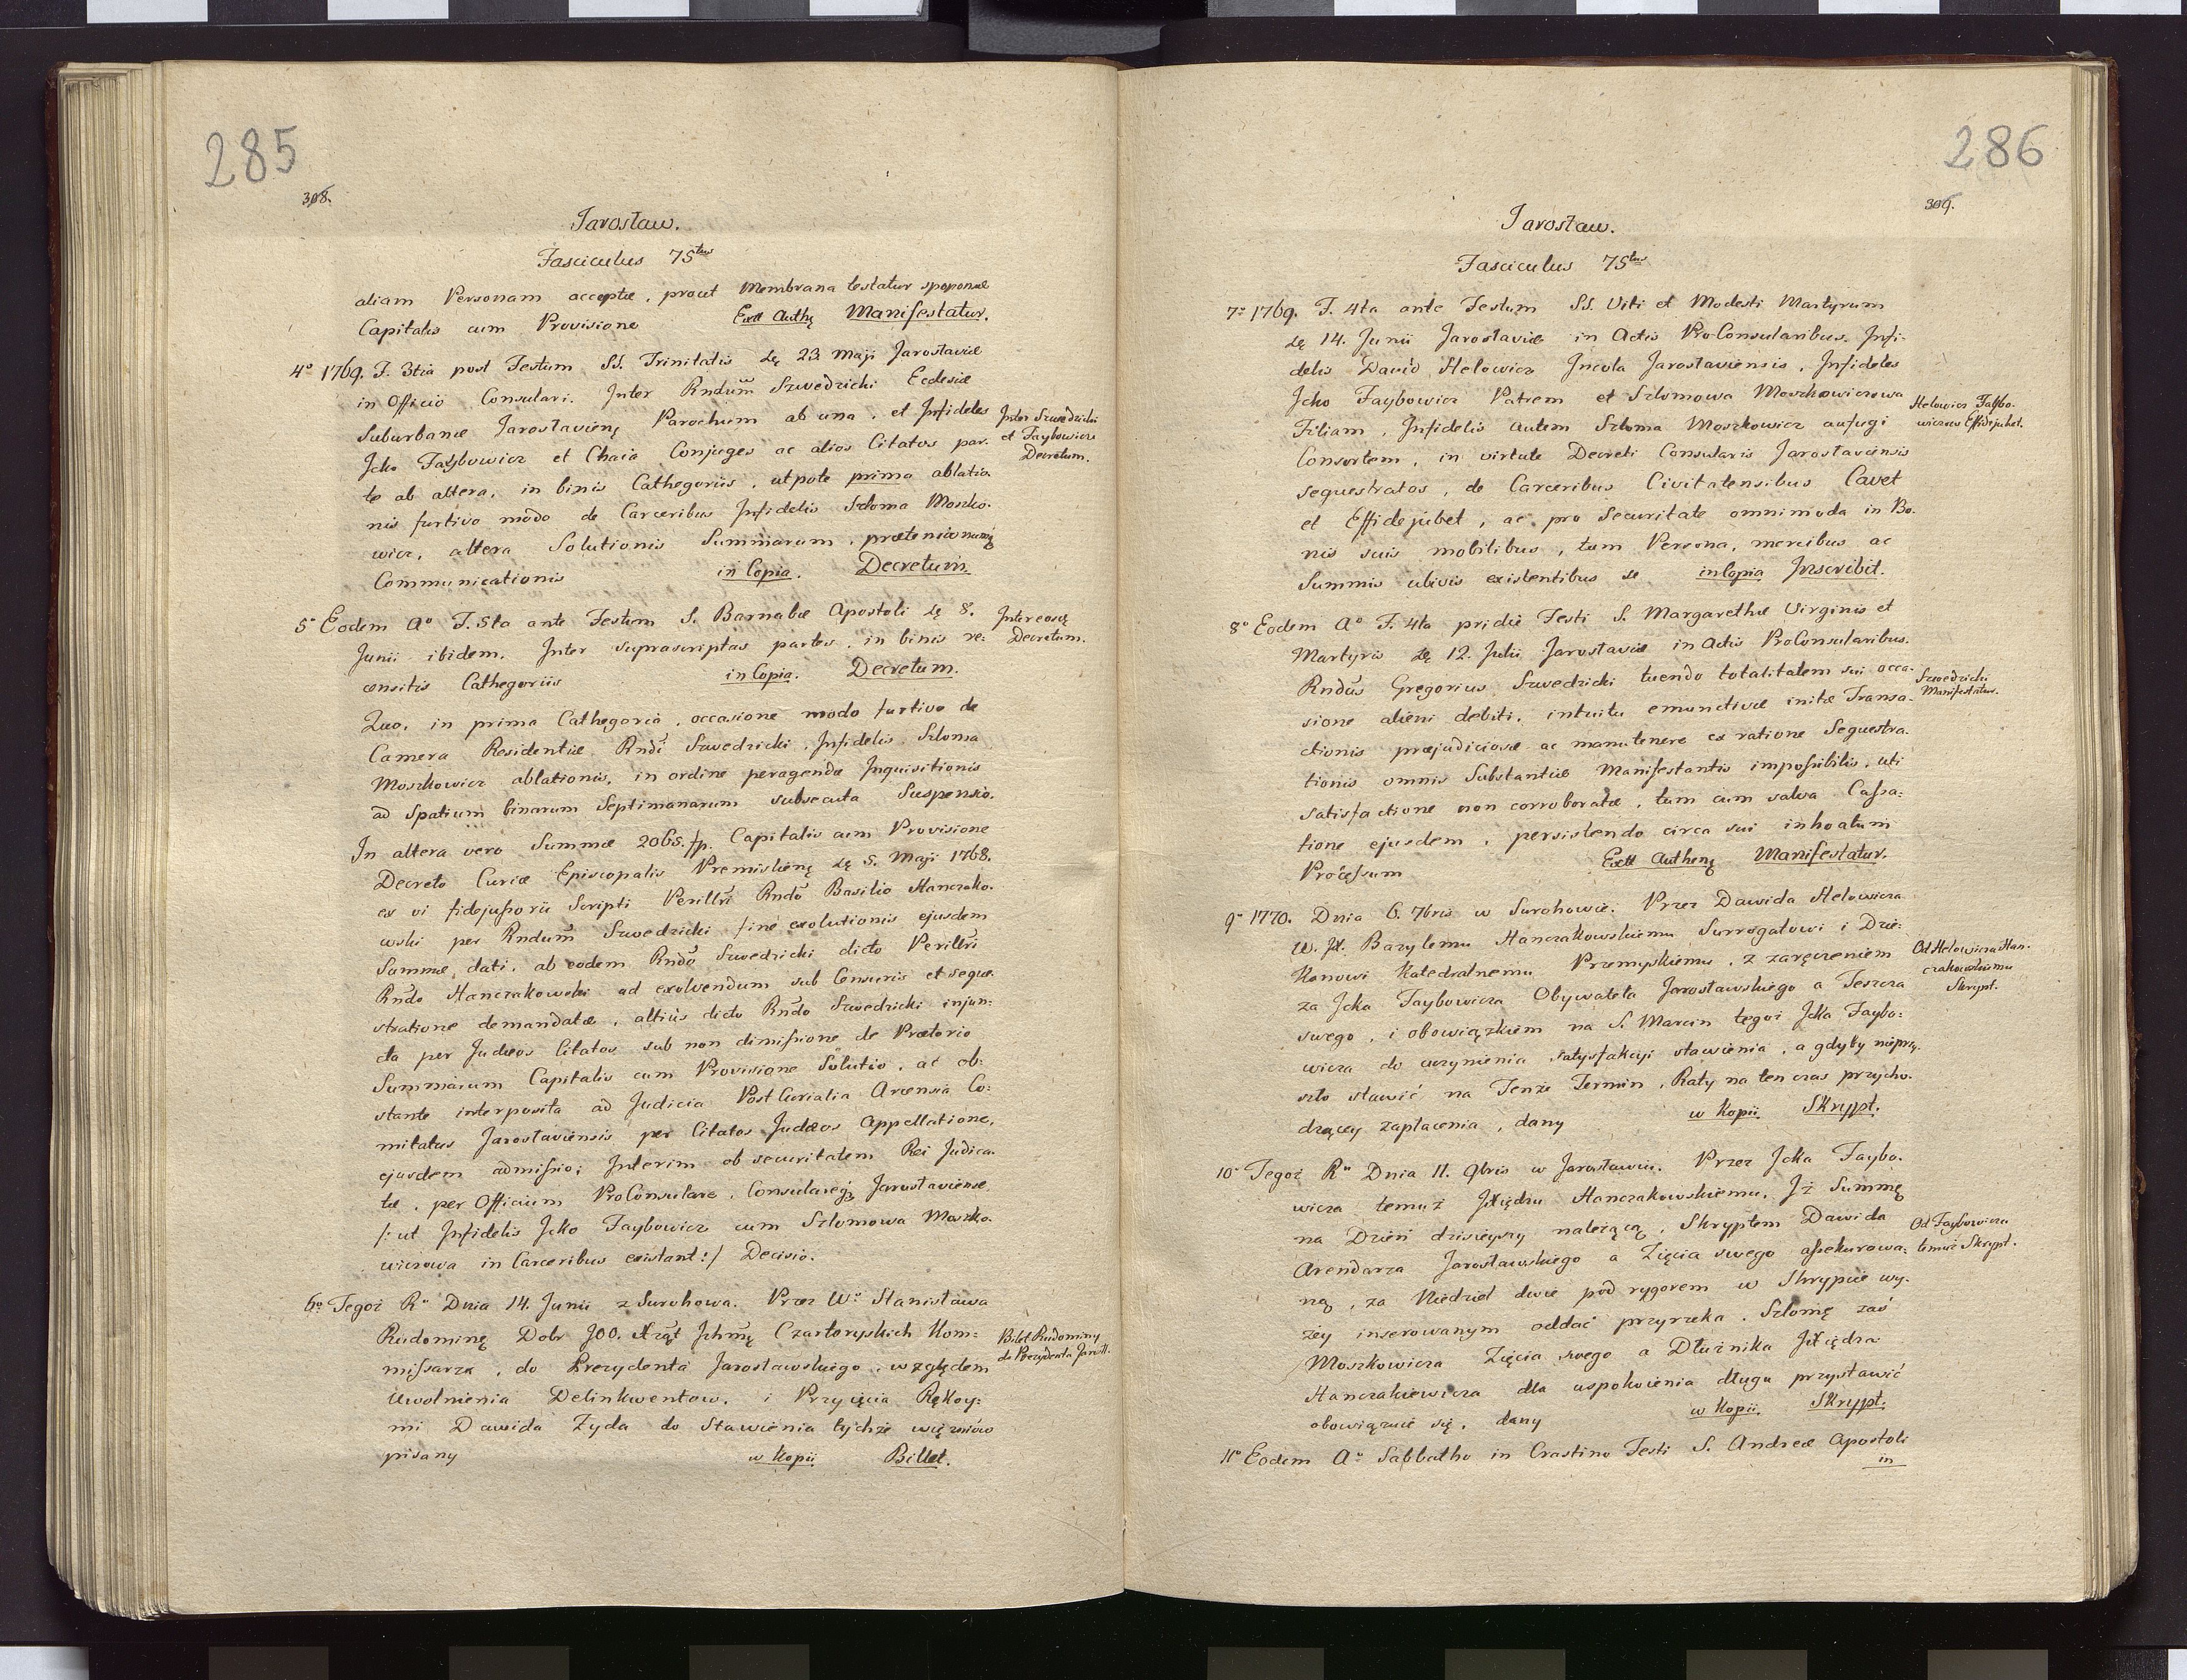 285
308.
Jarosław.
Fasciculus 75tus
aliam Personam acceptæ, prout Membrana testatur
Capitalis cum Provisione Extt Authę Manifestatur.
4o 1769. F. 3tia post Festum SS. Trinitatis dę 23 Maji Jarosłaviæ
in Officio Consulari. Inter Rndum Szwedzicki Ecclesiæ
Suburbanæ Jarosłavienę Parochum ab una, et Infideles
Jcko Faybowicz et Chaia Conjuges ac alios Citatos par-
te ab altera, in binis Cathegoriis, utpote prima ablatio-
nis furtivo modo de Carceribus Infidelis Szloma Moszko-
wicz, altera Solutionis Summarum,
Communicationis in Copia. Decretum.
Inter Szwedzicki
et Faybowicz
Decretum.
5o Eodem Ao F. 5ta ante Festum S. Barnabæ Apostoli dę 8.
Junii ibidem. Inter suprascriptas partes, in binis re-
censitis Cathegoriis in Copia. Decretum.
Inter eosdę
Decretum.
Quo, in prima Cathegoria, occasione modo furtivo de
Camera Residentiæ Rndi Szwedzicki, Infidelis Szloma
Moszkowicz ablationis, in ordine peragendæ Inquisitionis
ad Spatium binarum Septimanarum subsecuta Suspensio.
In altera vero Summæ 2065. fp. Capitalis cum Provisione
Decreto Curiæ Episcopalis Premislienę dę 5. Maji 1768.
ex vi fidejussorii Scripti Perillri Rndo Basilio Hanczako-
wski per Rndum Szwedzicki fine exolutionis ejusdem
Summæ, dati, ab eodem Rndo Szwedzicki dicto Perillri
Rndo Hanczakowski ad exolvendum sub Censuris et seque-
stratione demandatæ, altius dicto Rndo Szwedzicki injun-
cta per Judæos Citatos sub non dimissione de Prætorio
Summarum Capitalis cum Provisione Solutio, ac ob-
stante interposita ad Judicia PostCurialia Arcensia Co-
mitatus Jarosłaviensis per Citatos Judæos Appellatione,
ejusdem admissio; Interim ob securitatem Rei Judica-
tæ, per Officium ProConsulare, Consulareqę Jarosłaviense,
/: ut Infidelis Jcko Faybowicz cum Szlomowa Moszko-
wiczowa in Carceribus existant :/ Decisio.
6o Tegoż Ru Dnia 14. Junii z Surohowa. Przez Wo Stanisława
Rudominę Dobr JOO. Xżąt Jchmę Czartoryskich Kom-
missarza, do Prezydenta Jarosławskiego, względem
Uwolnienia Delinkwentow, i Przyięcia Rękoy-
mi Dawida Zyda do Stawienia tychże więzniów
pisany w Kopii Billet.
Bilet Rudominy
do Prezydenta Jarosł.
286
309.
Jarosław.
Fasciculus 75tus
7o 1769. F. 4ta ante Festum SS. Viti et Modesti Martyrum
dę 14. Junii Jarosłaviæ in Actis ProConsularibus. Infi-
delis Dawid Helowicz Incola Jarosłaviensis, Infideles
Jcko Faybowicz Patrem et Szlomowa Moszkowiczowa
Filiam, Infidelis autem Szloma Moszkowicz aufugi
Consortem, in virtute Decreti Consularis Jarosłaviensis
sequestratos, de Carceribus Civitatensibus Cavet
et Effidejubet, ac pro Securitate omnimoda in Bo-
nis suis mobilibus, tum Persona, mercibus ac
Summis ubivis existentibus se in Copia Inscribit.
Helowicz Faybo-
wiczow Effidejubet.
8o Eodem Ao F. 4ta pridie Festi S. Margarethæ Virginis et
Martyris dę 12. Julii Jarosłaviæ in Actis ProConsularibus.
Rndus Gregorius Szwedzicki tuendo totalitatem sui occa-
sione alieni debiti, intuitu emunctivæ initæ Transa-
ctionis præjudiciosæ ac manutenere ex ratione Sequestra-
tionis omnis Substantiæ Manifestantis impossibilis, uti
satisfactione non corroboratæ, tum cum salva Cassa-
tione ejusdem, persistendo circa sui inhoatum
Processum Extt Authenę Manifestatur.
Szwedzicki
Manifestatur.
9o 1770. Dnia 6. 7bris w Surohowie. Przez Dawida Helowicza
W. JX. Bazylemu Hanczakowskiemu Surrogatowi i Dzie-
kanowi Katedralnemu Przemyskiemu, z zaręczeniem
za Jcka Faybowicza Obywatela Jarosławskiego a Teszcza
swego, i obowiązkiem na S. Marcin tegoż Jcka Faybo-
wicza do uczynienia satysfakcyi stawienia, a gdyby nieprzy-
szło stawić na Tenże Termin, Raty na ten czas przycho-
dzącey zapłacenia, dany w Kopii. Skrypt.
Od Helowicza Han-
czakowskiemu
Skrypt.
10o Tegoż Ru Dnia 11. 9bris w Jarosławiu. Przez Jcka Faybo-
wicza temuż JXiędzu Hanczakowskiemu, Jż Summę
na Dzień dzisieyszy należącą, Skryptem Dawida
Arendarza Jarosławskiego a Zięcia swego assekurowa-
ną, za Niedziel dwie pod rygorem w Skrypcie wy-
żey inserowanym oddać przyrzeka. Szlomę zaś
Moszkowicza Zięcia swego a Dłużnika JXiędza
Hanczakiewicza dla uspokoienia długu przystawić
obowiązuie się, dany w Kopii. Skrypt.
Od Faybowicza
temuż Skrypt.
11o Eodem Ao Sabbatho in Crastino Festi S. Andreæ Apostoli
in